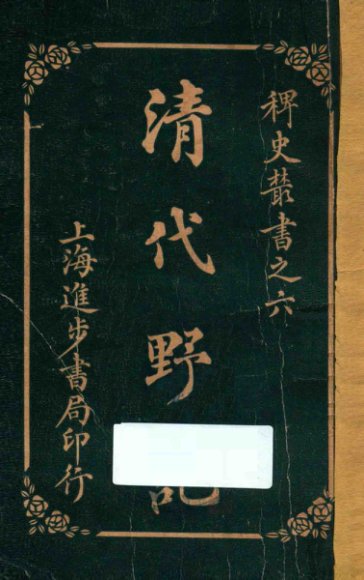 稗史叢書之六
清代野
上海進步書局印行